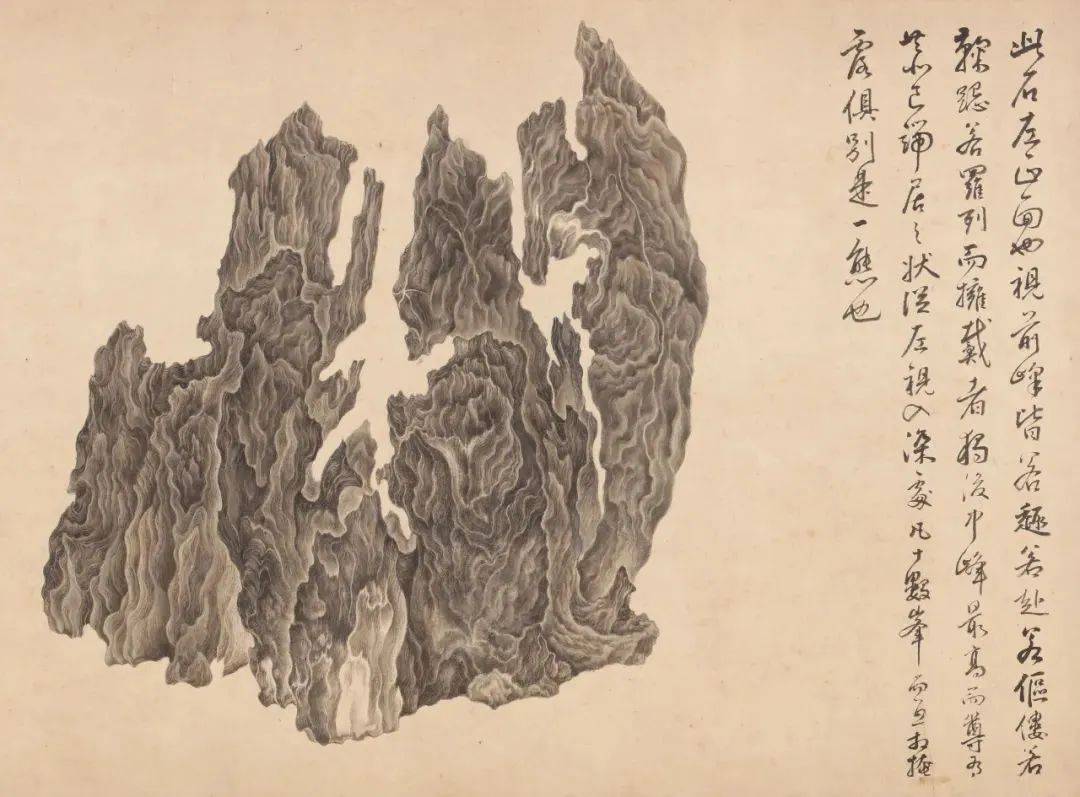 此石左正面也視前峰皆若趨若赴若傴僂若
鞠跽若羅列而擁戴者獨後中峰最高而尊有
恭己端居之狀從左視入深處凡十數峯而互相掩
露俱別是一態也